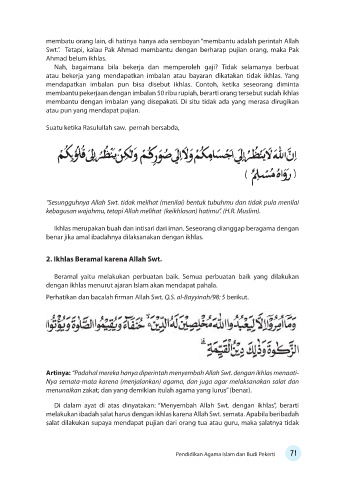 membatu orang lain, di hatinya hanya ada semboyan "membantu adalah perintah Allah
Swt.". Tetapi, kalau Pak Ahmad membantu dengan berharap pujian orang, maka Pak
Ahmad belum ikhlas.
Nah, bagaimana bila bekerja dan memperoleh gaji? Tidak selamanya berbuat
atau bekerja yang mendapatkan imbalan atau bayaran dikatakan tidak ikhlas. Yang
mendapatkan imbalan pun bisa disebut ikhlas. Contoh, ketika seseorang diminta
membantu pekerjaan dengan imbalan 50 ribu rupiah, berarti orang tersebut sudah ikhlas
membantu dengan imbalan yang disepakati. Di situ tidak ada yang merasa dirugikan
atau pun yang mendapat pujian.
Suatu ketika Rasulullah saw. pernah bersabda,
اِنَّ اللّٰهَ لَا يَنْظُرُ اِلَى اَجْسَامِكُمْ وَلَا اِلَى صُوَرِكُمْ وَلٰكِنْ يَنْظُرُ اِلَى قُلُوْبِكُمْ
( رَوَاهُ مُسْلِمٌ )
"Sesungguhnya Allah Swt. tidak melihat (menilai) bentuk tubuhmu dan tidak pula menilai
kebagusan wajahmu, tetapi Allah melihat (keikhlasan) hatimu". (H.R. Muslim).
Ikhlas merupakan buah dan intisari dari iman. Seseorang dianggap beragama dengan
benar jika amal ibadahnya dilaksanakan dengan ikhlas.
2. Ikhlas Beramal karena Allah Swt.
Beramal yaitu melakukan perbuatan baik. Semua perbuatan baik yang dilakukan
dengan ikhlas menurut ajaran Islam akan mendapat pahala.
Perhatikan dan bacalah firman Allah Swt. Q.S. al-Bayyinah/98: 5 berikut.
وَمَآ اُمِرُوْٓا اِلَّا لِيَعْبُدُوا اللّٰهَ مُخْلِصِيْنَ لَهُ الدِّيْنَ ەۙ حُنَفَاۤءَ وَيُقِيْمُوا الصَّلٰوةَ وَيُؤْتُوا
الزَّكٰوةَ وَذٰلِكَ دِيْنُ الْقَيِّمَةِۗ
Artinya: "Padahal mereka hanya diperintah menyembah Allah Swt. dengan ikhlas menaati-
Nya semata-mata karena (menjalankan) agama, dan juga agar melaksanakan salat dan
menunaikan zakat; dan yang demikian itulah agama yang lurus" (benar).
Di dalam ayat di atas dinyatakan: "Menyembah Allah Swt. dengan ikhlas", berarti
melakukan ibadah salat harus dengan ikhlas karena Allah Swt. semata. Apabila beribadah
salat dilakukan supaya mendapat pujian dari orang tua atau guru, maka salatnya tidak
Pendidikan Agama Islam dan Budi Pekerti 71